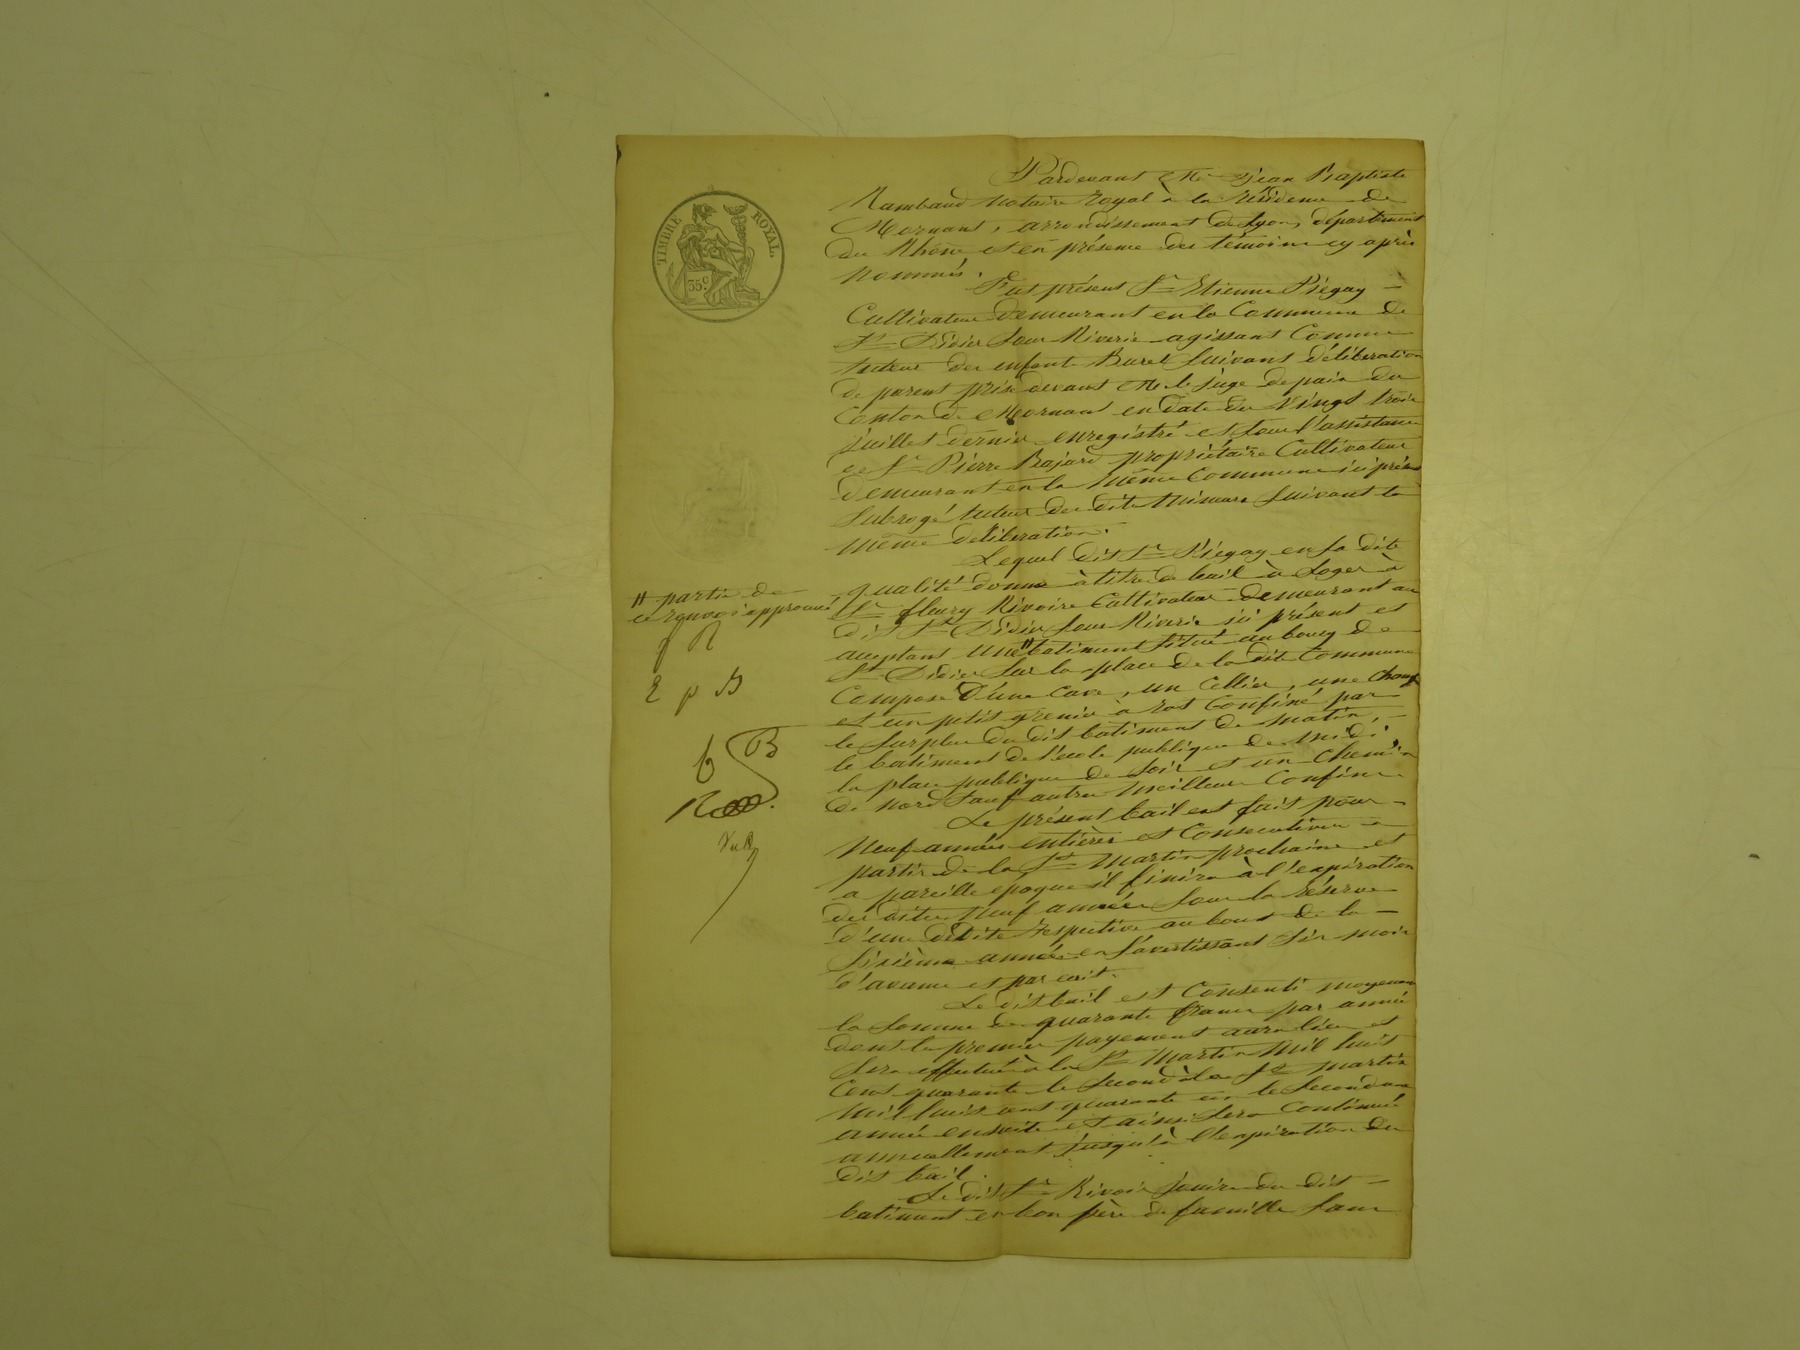 TIMBRE ROYAL.
35 c.
Pardevant Me Jean Baptiste
Rambaud Notaire Royal à la Résidence de
Mornant, arrondissement de Lyon, département
du Rhône et en présence des témoins cy après
Nommés.
Fut présent Sr Etienne Piégay
Cultivateur demeurant en la Commune de
St Didier Sous Riverie agissant Comme
tuteur des enfants Burel Suivant déliberation
de parents prise devant Mr le juge de paix du
Canton de Mornant en date du Vingt trois
juillet dernier enregistré et sous l'assistance
de Sr Pierre Bajard propriétaire Cultivateur
demeurant en la même Commune ici présent
Subrogé tuteur des dits Mineurs Suivant la
même déliberation.
Lequel dit Sr Piégay en sa dite
qualité donne à titre de bail à Loyer à
Sr fleury Rivoire Cultivateur demeurant au
dit St Didier Sous Riverie ici présent et
acceptant une " batiment Situé au bourg de
St Didier Sur la place de la dite Commune
Composé d'une Cave, un Cellier, une Chamb
et un petit grenier à Confiné par
le Surplus du dit batiment de matin,
le batiment de l'école publique de midi,
la place publique de Soir et un Chemin
de Nord Sauf autres meilleurs Confins.
Le présent bail est fait pour
Neuf années entières et Consecutives à
partir de la St Martin prochaine et
a pareille epoque il finira à l'expiration
des dites Neuf années Sous la réserve
d'une dédite respective au bout de la
Sixième année en S'avertissant Six mois
d'avance et par ecrit.
Le dit bail est Consenti moyennant
la Somme de quarante francs par année
dont le premier payement aura lieu et
Sera effectué à la St Martin Mil huit
Cent quarante le Second à la St Martin
Mil huit cent quarante un le Second
année ensuite et ainsi Sera Continué
annuellement jusqu'à l'expiration du
dit bail.
Le dit Sr Rivoir jouira du dit
batiment en bon père de famille Sans
" partie de
ce renvoi approuvé
f R
E p B
B
R